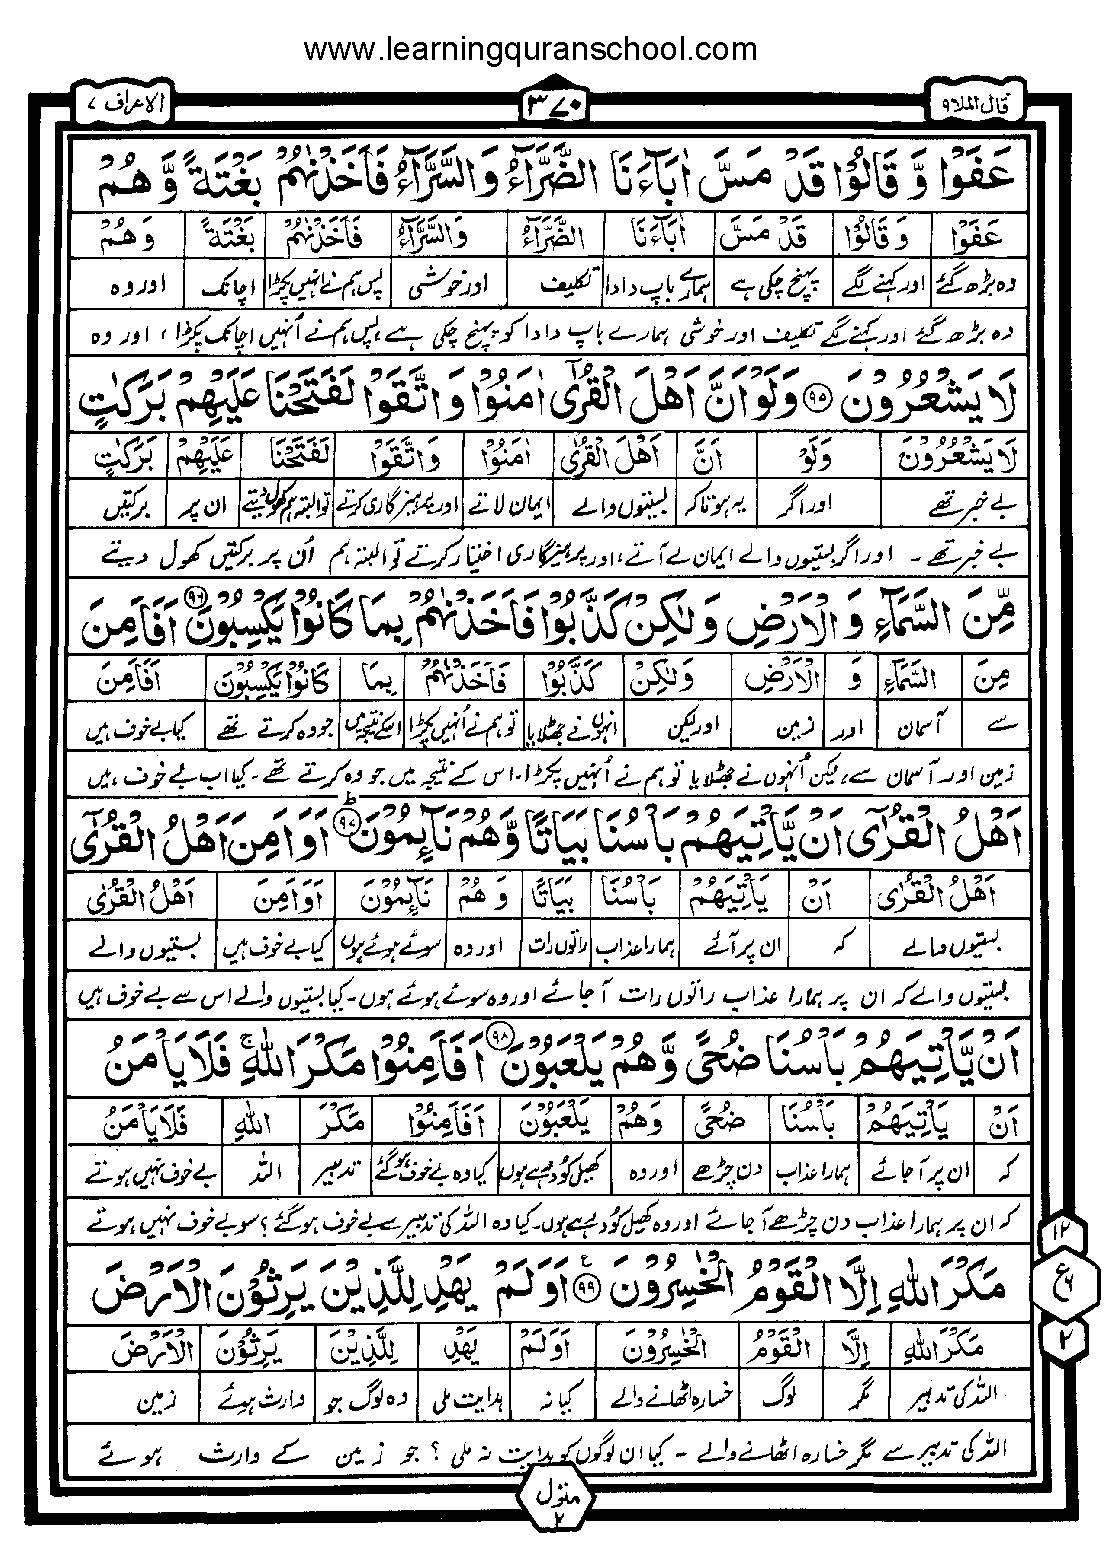 www.learningquranschool.com
قال الملا ٩
٣٧٠
الاعراف ٧
عَفَوْا وَّ قَالُوْا قَدْ مَسَّ اٰبَآءَنَا الضَّرَّآءُ وَالسَّرَّآءُ فَاَخَذْنٰهُمْ بَغْتَةً وَّ هُمْ
عَفَوْا وَ قَالُوْا قَدْ مَسَّ اٰبَآءَنَا الضَّرَّآءُ وَالسَّرَّآءُ فَاَخَذْنٰهُمْ بَغْتَةً وَ هُمْ
وہ بڑھ گئے اور کہنے لگے پہنچ چکی ہے ہمارے باپ دادا تکلیف اور خوشی پس ہم نے انہیں پکڑا اچانک اور وہ
وہ بڑھ گئے اور کہنے لگے تکلیف اور خوشی ہمارے باپ دادا کو پہنچ چکی ہے، پس ہم نے اُنہیں اچانک پکڑا، اور وہ
لَا يَشْعُرُوْنَ ٩٥ وَلَوْ اَنَّ اَهْلَ الْقُرٰٓى اٰمَنُوْا وَ اتَّقَوْا لَفَتَحْنَا عَلَيْهِمْ بَرَكٰتٍ
لَا يَشْعُرُوْنَ وَلَوْ اَنَّ اَهْلَ الْقُرٰى اٰمَنُوْا وَ اتَّقَوْا لَفَتَحْنَا عَلَيْهِمْ بَرَكٰتٍ
بے خبر تھے اور اگر یہ ہوتا کہ بستیوں والے ایمان لاتے اور پرہیزگاری کرتے تو البتہ ہم کھول دیتے ان پر برکتیں
بے خبر تھے ۔ اور اگر بستیوں والے ایمان لے آتے، اور پرہیزگاری اختیار کرتے تو البتہ ہم اُن پر برکتیں کھول دیتے
مِّنَ السَّمَآءِ وَ الْاَرْضِ وَ لٰكِنْ كَذَّبُوْا فَاَخَذْنٰهُمْ بِمَا كَانُوْا يَكْسِبُوْنَ ٩٦ اَفَاَمِنَ
مِنَ السَّمَآءِ وَ الْاَرْضِ وَ لٰكِنْ كَذَّبُوْا فَاَخَذْنٰهُمْ بِمَا كَانُوْا يَكْسِبُوْنَ اَفَاَمِنَ
سے آسمان اور زمین اور لیکن انہوں نے جھٹلایا تو ہم نے اُنہیں پکڑا اسکے نتیجہ میں جو وہ کرتے تھے کیا بے خوف ہیں
زمین اور آسمان سے، لیکن اُنہوں نے جھٹلایا تو ہم نے اُنہیں پکڑا، اس کے نتیجہ میں جو وہ کرتے تھے ۔ کیا اب بے خوف ہیں
اَهْلُ الْقُرٰٓى اَنْ يَّاْتِيَهُمْ بَاْسُنَا بَيَاتًا وَّ هُمْ نَآئِمُوْنَ ٩٧ ط اَوَ اَمِنَ اَهْلُ الْقُرٰٓى
اَهْلُ الْقُرٰى اَنْ يَاْتِيَهُمْ بَاْسُنَا بَيَاتًا وَ هُمْ نَآئِمُوْنَ اَوَ اَمِنَ اَهْلُ الْقُرٰى
بستیوں والے کہ ان پر آئے ہمارا عذاب راتوں رات اور وہ سوئے ہوئے ہوں کیا بے خوف ہیں بستیوں والے
بستیوں والے کہ ان پر ہمارا عذاب راتوں رات آ جائے اور وہ سوئے ہوئے ہوں ۔ کیا بستیوں والے اس سے بے خوف ہیں
اَنْ يَّاْتِيَهُمْ بَاْسُنَا ضُحًى وَّ هُمْ يَلْعَبُوْنَ ٩٨ اَفَاَمِنُوْا مَكْرَ اللّٰهِ ۚ فَلَا يَاْمَنُ
اَنْ يَاْتِيَهُمْ بَاْسُنَا ضُحًى وَ هُمْ يَلْعَبُوْنَ اَفَاَمِنُوْا مَكْرَ اللّٰهِ فَلَا يَاْمَنُ
کہ ان پر آ جائے ہمارا عذاب دن چڑھے اور وہ کھیل کود رہے ہوں کیا وہ بے خوف ہو گئے تدبیر اللہ بے خوف نہیں ہوتے
کہ ان پر ہمارا عذاب دن چڑھے آ جائے اور وہ کھیل کود رہے ہوں ۔ کیا وہ اللہ کی تدبیر سے بے خوف ہو گئے؟ سو بے خوف نہیں ہوتے
مَكْرَ اللّٰهِ اِلَّا الْقَوْمُ الْخٰسِرُوْنَ ٩٩ ع اَوَ لَمْ يَهْدِ لِلَّذِيْنَ يَرِثُوْنَ الْاَرْضَ
مَكْرَ اللّٰهِ اِلَّا الْقَوْمُ الْخٰسِرُوْنَ اَوَ لَمْ يَهْدِ لِلَّذِيْنَ يَرِثُوْنَ الْاَرْضَ
اللہ کی تدبیر مگر لوگ خسارہ اٹھانے والے کیا نہ ہدایت ملی وہ لوگ جو وارث ہوئے زمین
اللہ کی تدبیر سے مگر خسارہ اٹھانے والے ۔ کیا ان لوگوں کو ہدایت نہ ملی ؟ جو زمین کے وارث ہوئے
١٢
ع ٦
٢
منزل ٢